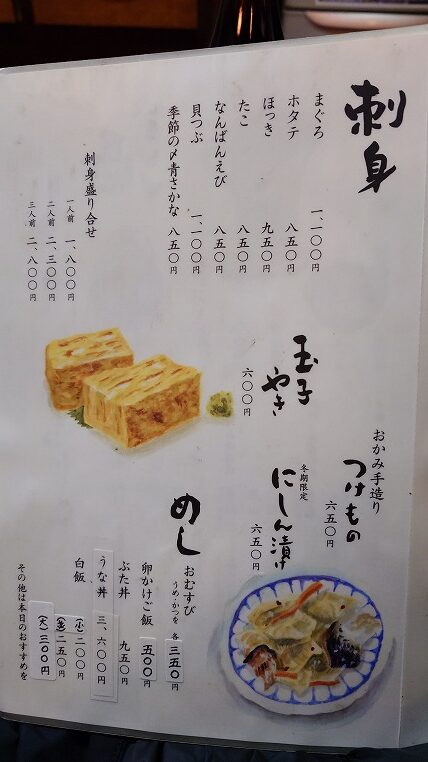 刺身
まぐろ 一、一〇〇円
ホタテ 八五〇円
ほっき 九五〇円
たこ 八五〇円
なんばんえび 八五〇円
貝つぶ 一、一〇〇円
季節の〆青さかな 八五〇円
刺身盛り合せ
一人前 一、八〇〇円
二人前 二、三〇〇円
三人前 二、八〇〇円
玉子やき
六〇〇円
おかみ手造り
つけもの
六五〇円
冬期限定
にしん漬け
六五〇円
めし
おむすび うめ・かつを 各 三五〇円
卵かけご飯 五〇〇円
ぶた丼 九五〇円
うな丼 三、六〇〇円
白飯 (小)二〇〇円
二五〇円
(大)三〇〇円
その他は本日のおすすめを